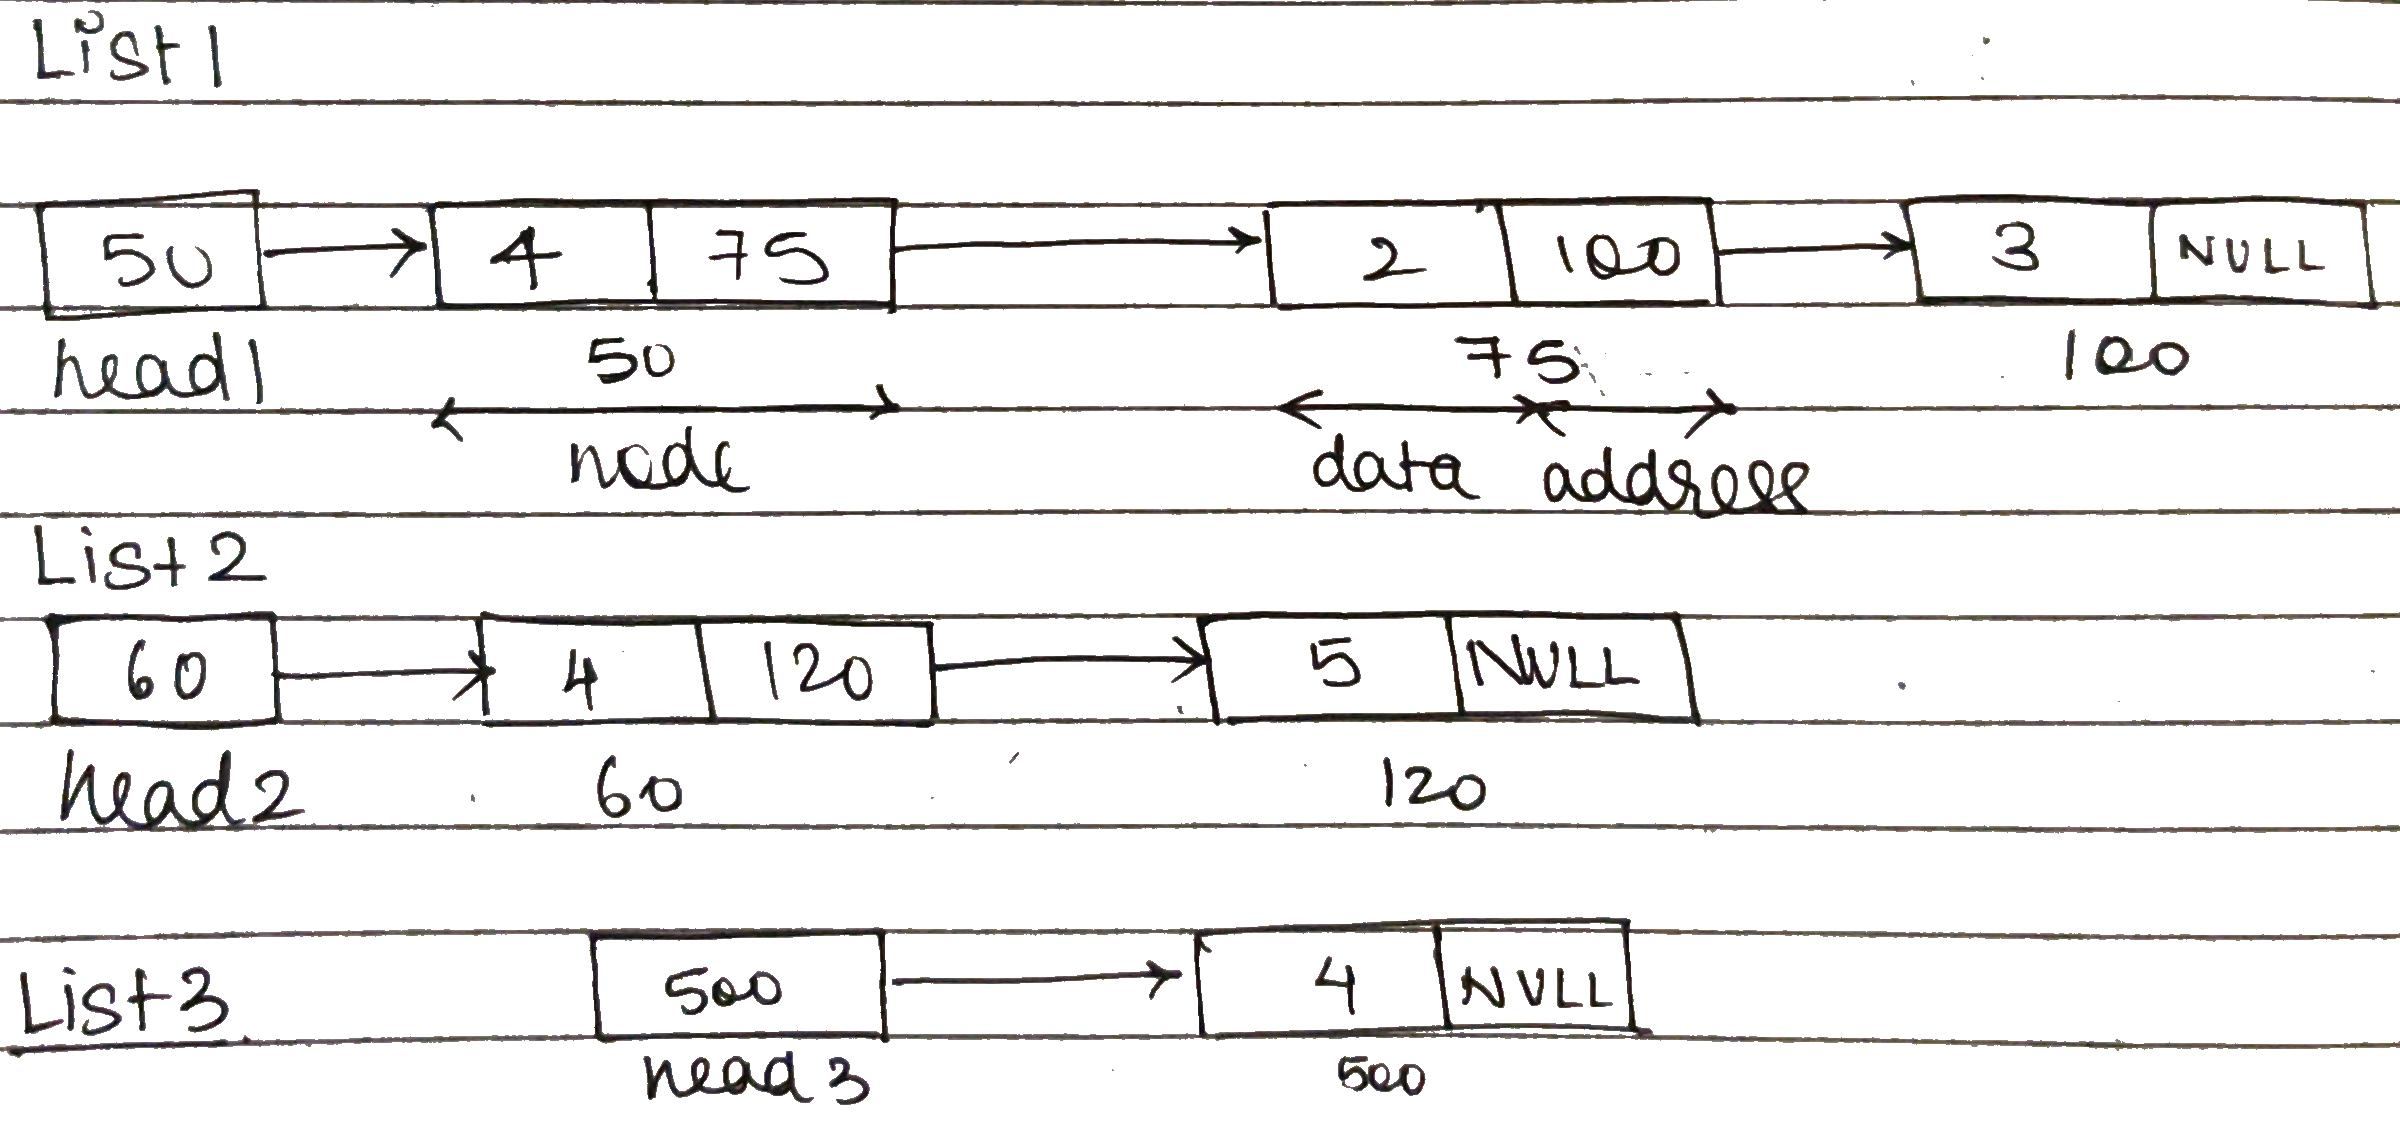 List 1
50 4 75 2 100 3 NULL
head1 50 75 100
node data address
List 2
60 4 120 5 NULL
head2 60 120
List 3 500 4 NULL
head 3 500